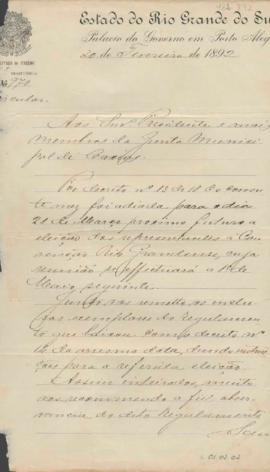 Estado do Rio Grande do Su
Palacio do Governo em Porto Aleg
20 de Fevereiro de 1892
Nº
Aos Snrs Presidente e mais
membros da Junta Munici
pal de
Por decreto nº 13 de 18 do corren
te mez foi adiada para o dia
21 de Março proximo futuro a
eleição dos representantes á Con
venção Rio Grandense, cuja
reunião se effectuará a 1º de
Maio seguinte.
Junto vos remetto os inclu
sos exemplares do regulamen
to que baixou com o decreto nº
da mesma data, dando instruc
ções para a referida eleição.
Assim inteirados, muito
vos recommendo a fiel obser
vancia do dito Regulamento